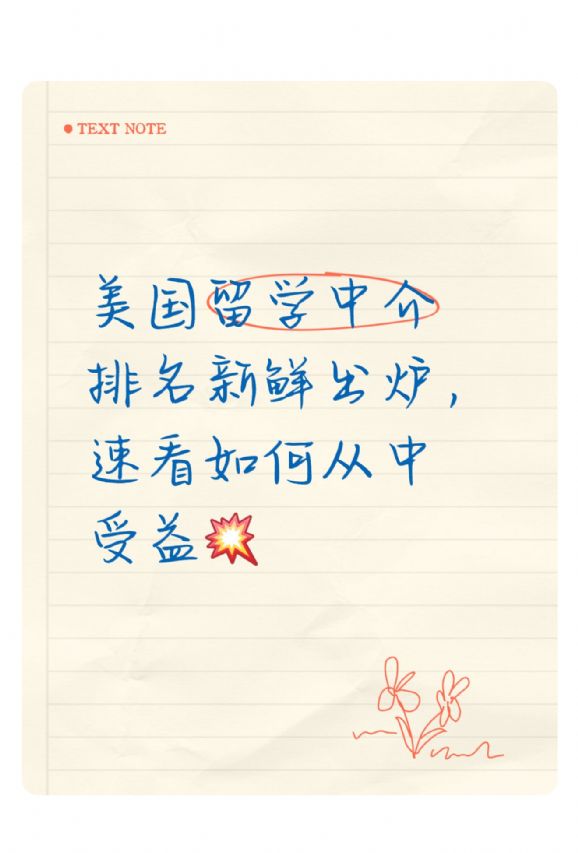 TEXT NOTE
美国留学中介
排名新鲜出炉，
速看如何从中
受益💥